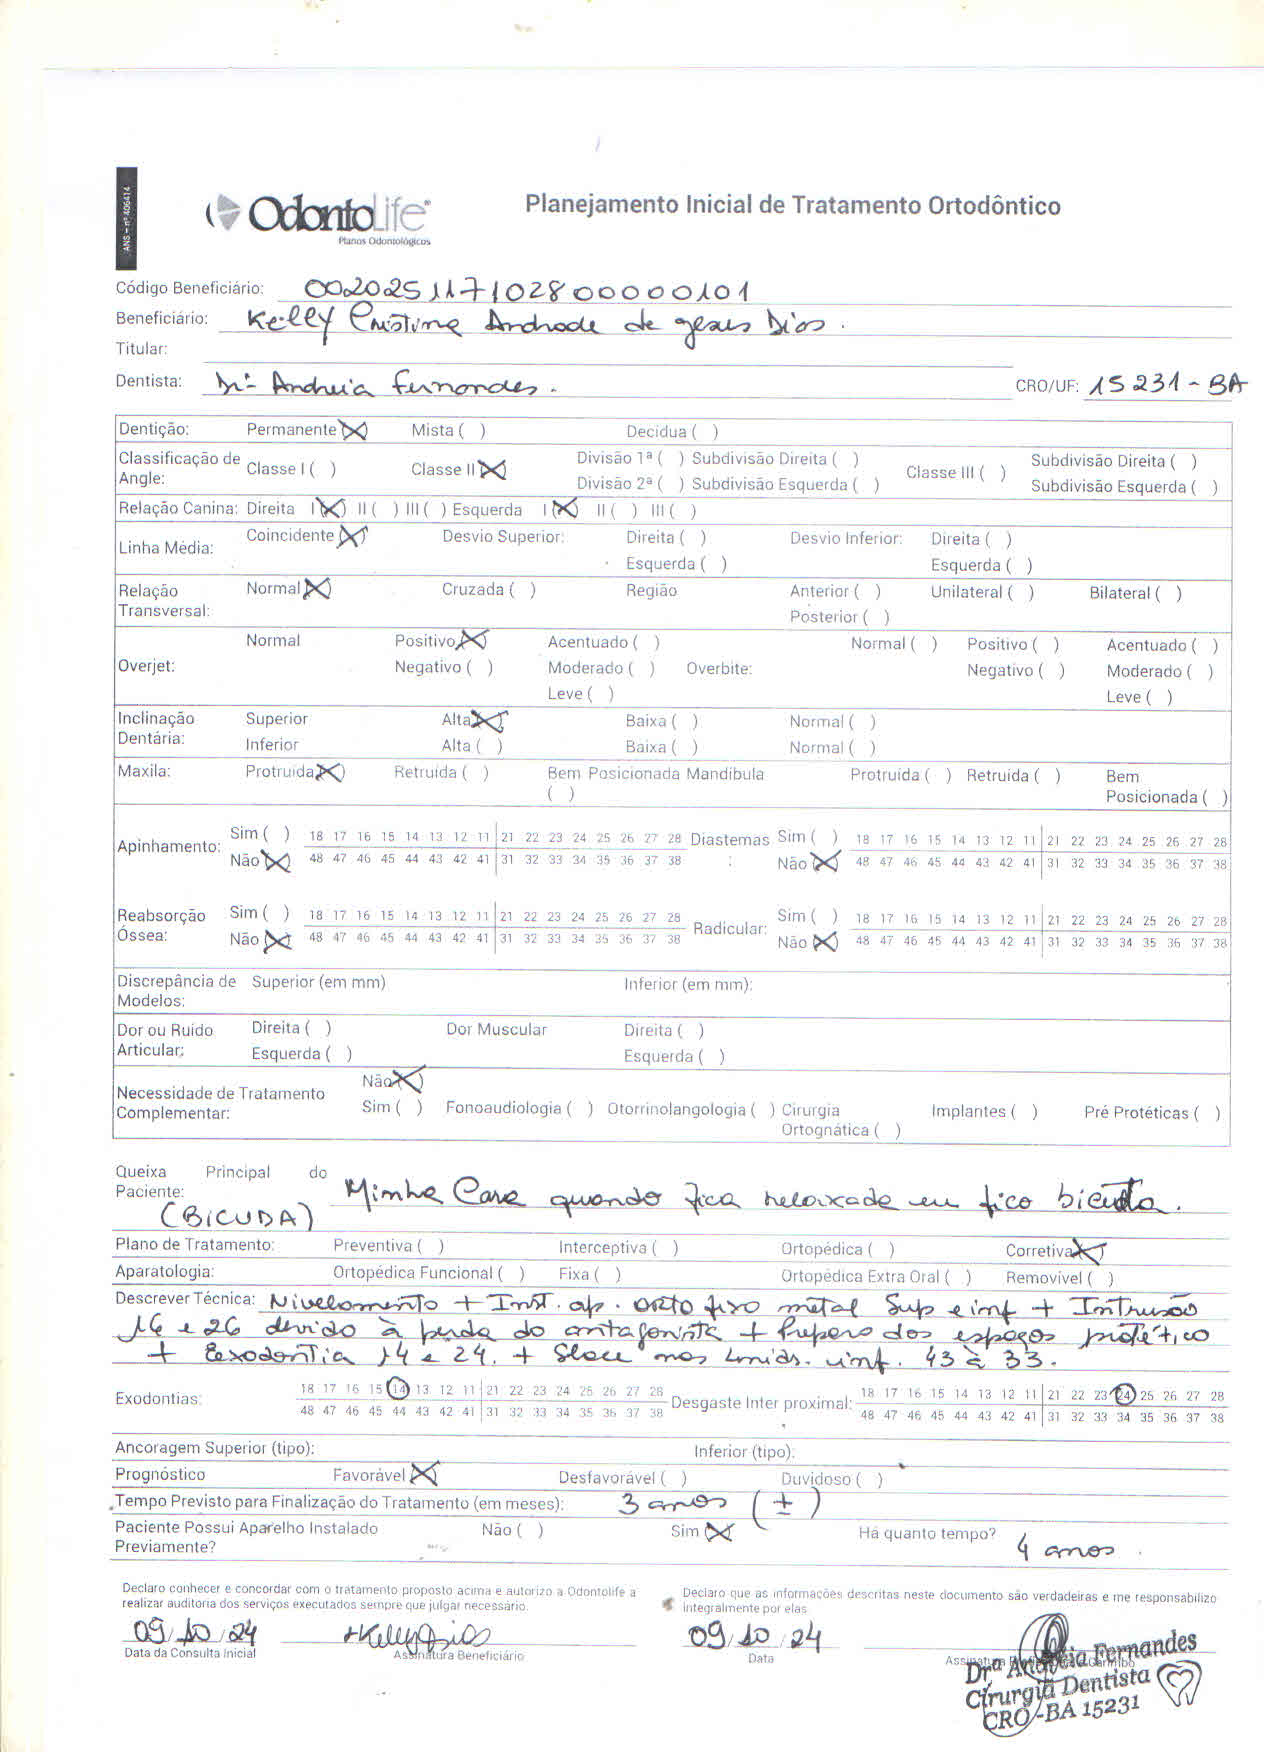 ANS - nº 406414
OdontoLife®
Planos Odontológicos
Planejamento Inicial de Tratamento Ortodôntico
Código Beneficiário: 002025117102800000101
Beneficiário: Kelly Cristina Andrade de Jesus Dias.
Titular:
Dentista: Drª Andreia Fernandes. CRO/UF: 15231-BA
Dentição: Permanente (X) Mista ( ) Decídua ( )
Classificação de Angle: Classe I ( ) Classe II (X) Divisão 1ª ( ) Subdivisão Direita ( ) Divisão 2ª ( ) Subdivisão Esquerda ( ) Classe III ( ) Subdivisão Direita ( ) Subdivisão Esquerda ( )
Relação Canina: Direita I (X) II ( ) III ( ) Esquerda I (X) II ( ) III ( )
Linha Média: Coincidente (X) Desvio Superior: Direita ( ) Esquerda ( ) Desvio Inferior: Direita ( ) Esquerda ( )
Relação Transversal: Normal (X) Cruzada ( ) Região Anterior ( ) Posterior ( ) Unilateral ( ) Bilateral ( )
Overjet: Normal Positivo (X) Negativo ( ) Acentuado ( ) Moderado ( ) Leve ( ) Overbite: Normal ( ) Positivo ( ) Negativo ( ) Acentuado ( ) Moderado ( ) Leve ( )
Inclinação Dentária: Superior Alta (X) Baixa ( ) Normal ( )
Inferior Alta ( ) Baixa ( ) Normal ( )
Maxila: Protruída (X) Retruída ( ) Bem Posicionada ( ) Mandíbula Protruída ( ) Retruída ( ) Bem Posicionada ( )
Apinhamento: Sim ( ) 18 17 16 15 14 13 12 11 21 22 23 24 25 26 27 28 Diastemas: Sim ( ) 18 17 16 15 14 13 12 11 21 22 23 24 25 26 27 28
Não (X) 48 47 46 45 44 43 42 41 31 32 33 34 35 36 37 38 Não (X) 48 47 46 45 44 43 42 41 31 32 33 34 35 36 37 38
Reabsorção Óssea: Sim ( ) 18 17 16 15 14 13 12 11 21 22 23 24 25 26 27 28 Radicular: Sim ( ) 18 17 16 15 14 13 12 11 21 22 23 24 25 26 27 28
Não (X) 48 47 46 45 44 43 42 41 31 32 33 34 35 36 37 38 Não (X) 48 47 46 45 44 43 42 41 31 32 33 34 35 36 37 38
Discrepância de Modelos: Superior (em mm) Inferior (em mm):
Dor ou Ruído Articular: Direita ( ) Esquerda ( ) Dor Muscular Direita ( ) Esquerda ( )
Necessidade de Tratamento Complementar: Não (X)
Sim ( ) Fonoaudiologia ( ) Otorrinolangologia ( ) Cirurgia Ortognática ( ) Implantes ( ) Pré Protéticas ( )
Queixa Principal do Paciente: Minha Cara quando fica relaxada eu fico bicuda.
(BICUDA)
Plano de Tratamento: Preventiva ( ) Interceptiva ( ) Ortopédica ( ) Corretiva (X)
Aparatologia: Ortopédica Funcional ( ) Fixa ( ) Ortopédica Extra Oral ( ) Removível ( )
Descrever Técnica: Nivelamento + Inst. ap. orto fixo metal Sup e inf + Intrusão
16 e 26 devido à perda do antagonista + Preparo dos espaços protético
+ Exodontia 14 e 24. + Slace nas unids. inf. 43 à 33.
Exodontias: 18 17 16 15 14 13 12 11 21 22 23 24 25 26 27 28 Desgaste Inter proximal: 18 17 16 15 14 13 12 11 21 22 23 24 25 26 27 28
48 47 46 45 44 43 42 41 31 32 33 34 35 36 37 38 48 47 46 45 44 43 42 41 31 32 33 34 35 36 37 38
Ancoragem Superior (tipo): Inferior (tipo):
Prognóstico Favorável (X) Desfavorável ( ) Duvidoso ( )
Tempo Previsto para Finalização do Tratamento (em meses): 3 anos (±)
Paciente Possui Aparelho Instalado Previamente? Não ( ) Sim (X) Há quanto tempo? 4 anos.
Declaro conhecer e concordar com o tratamento proposto acima e autorizo a Odontolife a realizar auditoria dos serviços executados sempre que julgar necessário.
Declaro que as informações descritas neste documento são verdadeiras e me responsabilizo integralmente por elas
09/10/24 +Kelly Dias 09/10/24
Data da Consulta Inicial Assinatura Beneficiário Data
Drª Andreia Fernandes
Cirurgiã Dentista
CRO-BA 15231